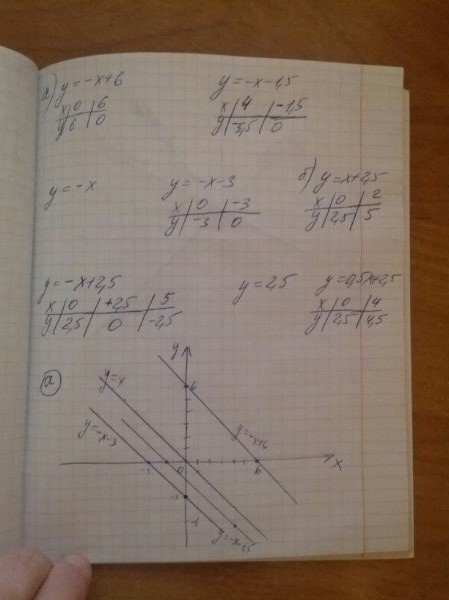 а) y = -x+6
x | 0 | 6
y | 6 | 0
y = -x-1,5
x | 4 | -1,5
y | -5,5 | 0
y = -x
y = -x-3
x | 0 | -3
y | -3 | 0
б) y = x+2,5
x | 0 | 2
y | 2,5 | 5
y = -x+2,5
x | 0 | +2,5 | 5
y | 2,5 | 0 | -2,5
y = 2,5
y = 0,5x+2,5
x | 0 | 4
y | 2,5 | 4,5
а
y
6
y = -x
y = -x-3
y = -x+6
0
6
x
-3
-3
y = -x-1,5